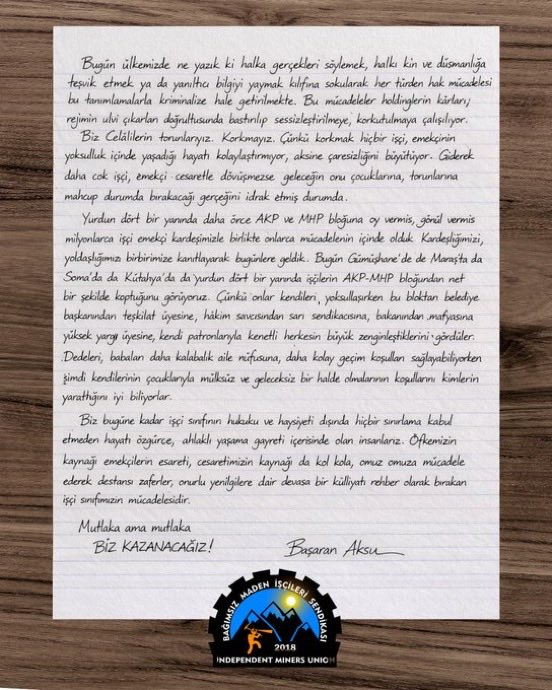 Bugün ülkemizde ne yazık ki halka gerçekleri söylemek, halkı kin ve düşmanlığa
teşvik etmek ya da yanıltıcı bilgiyi yaymak kılıfına sokularak her türden hak mücadelesi
bu tanımlamalarla kriminalize hale getirilmekte. Bu mücadeleler holdinglerin kârları;
rejimin ulvi çıkarları doğrultusunda bastırılıp sessizleştirilmeye, korkutulmaya çalışılıyor.
Biz Celâlilerin torunlarıyız. Korkmayız. Çünkü korkmak hiçbir işçi, emekçinin
yoksulluk içinde yaşadığı hayatı kolaylaştırmıyor, aksine çaresizliğini büyütüyor. Giderek
daha çok işçi, emekçi cesaretle dövüşmezse geleceğin onu çocuklarına, torunlarına
mahcup durumda bırakacağı gerçeğini idrak etmiş durumda.
Yurdun dört bir yanında daha önce AKP ve MHP bloğuna oy vermiş, gönül vermiş
milyonlarca işçi emekçi kardeşimizle birlikte onlarca mücadelenin içinde olduk. Kardeşliğimizi,
yoldaşlığımızı birbirimize kanıtlayarak bugünlere geldik. Bugün Gümüşhane'de de Maraş'ta da
Soma'da da Kütahya'da da yurdun dört bir yanında işçilerin AKP-MHP bloğundan net
bir şekilde koptuğunu görüyoruz. Çünkü onlar kendileri, yoksullaşırken bu bloktan belediye
başkanından teşkilat üyesine, hâkim savcısından sarı sendikacısına, bakanından mafyasına
yüksek yargı üyesine, kendi patronlarıyla kenetli herkesin büyük zenginleştiklerini gördüler.
Dedeleri, babaları daha kalabalık aile nüfusuna, daha kolay geçim koşulları sağlayabiliyorken
şimdi kendilerinin çocuklarıyla mülksüz ve geleceksiz bir halde olmalarının koşullarını kimlerin
yarattığını iyi biliyorlar.
Biz bugüne kadar işçi sınıfının hukuku ve haysiyeti dışında hiçbir sınırlama kabul
etmeden hayatı özgürce, ahlaklı yaşama gayreti içerisinde olan insanlarız. Öfkemizin
kaynağı emekçilerin esareti, cesaretimizin kaynağı da kol kola, omuz omuza mücadele
ederek destansı zaferler, onurlu yenilgilere dair devasa bir külliyatı rehber olarak bırakan
işçi sınıfımızın mücadelesidir.
Mutlaka ama mutlaka
BİZ KAZANACAĞIZ!
Başaran Aksu
BAĞIMSIZ MADEN İŞÇİLERİ SENDİKASI
2018
INDEPENDENT MINERS UNION